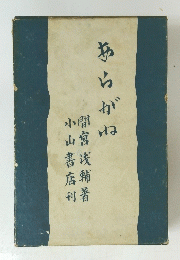 あらがね
間宮茂輔著
小山書店刊